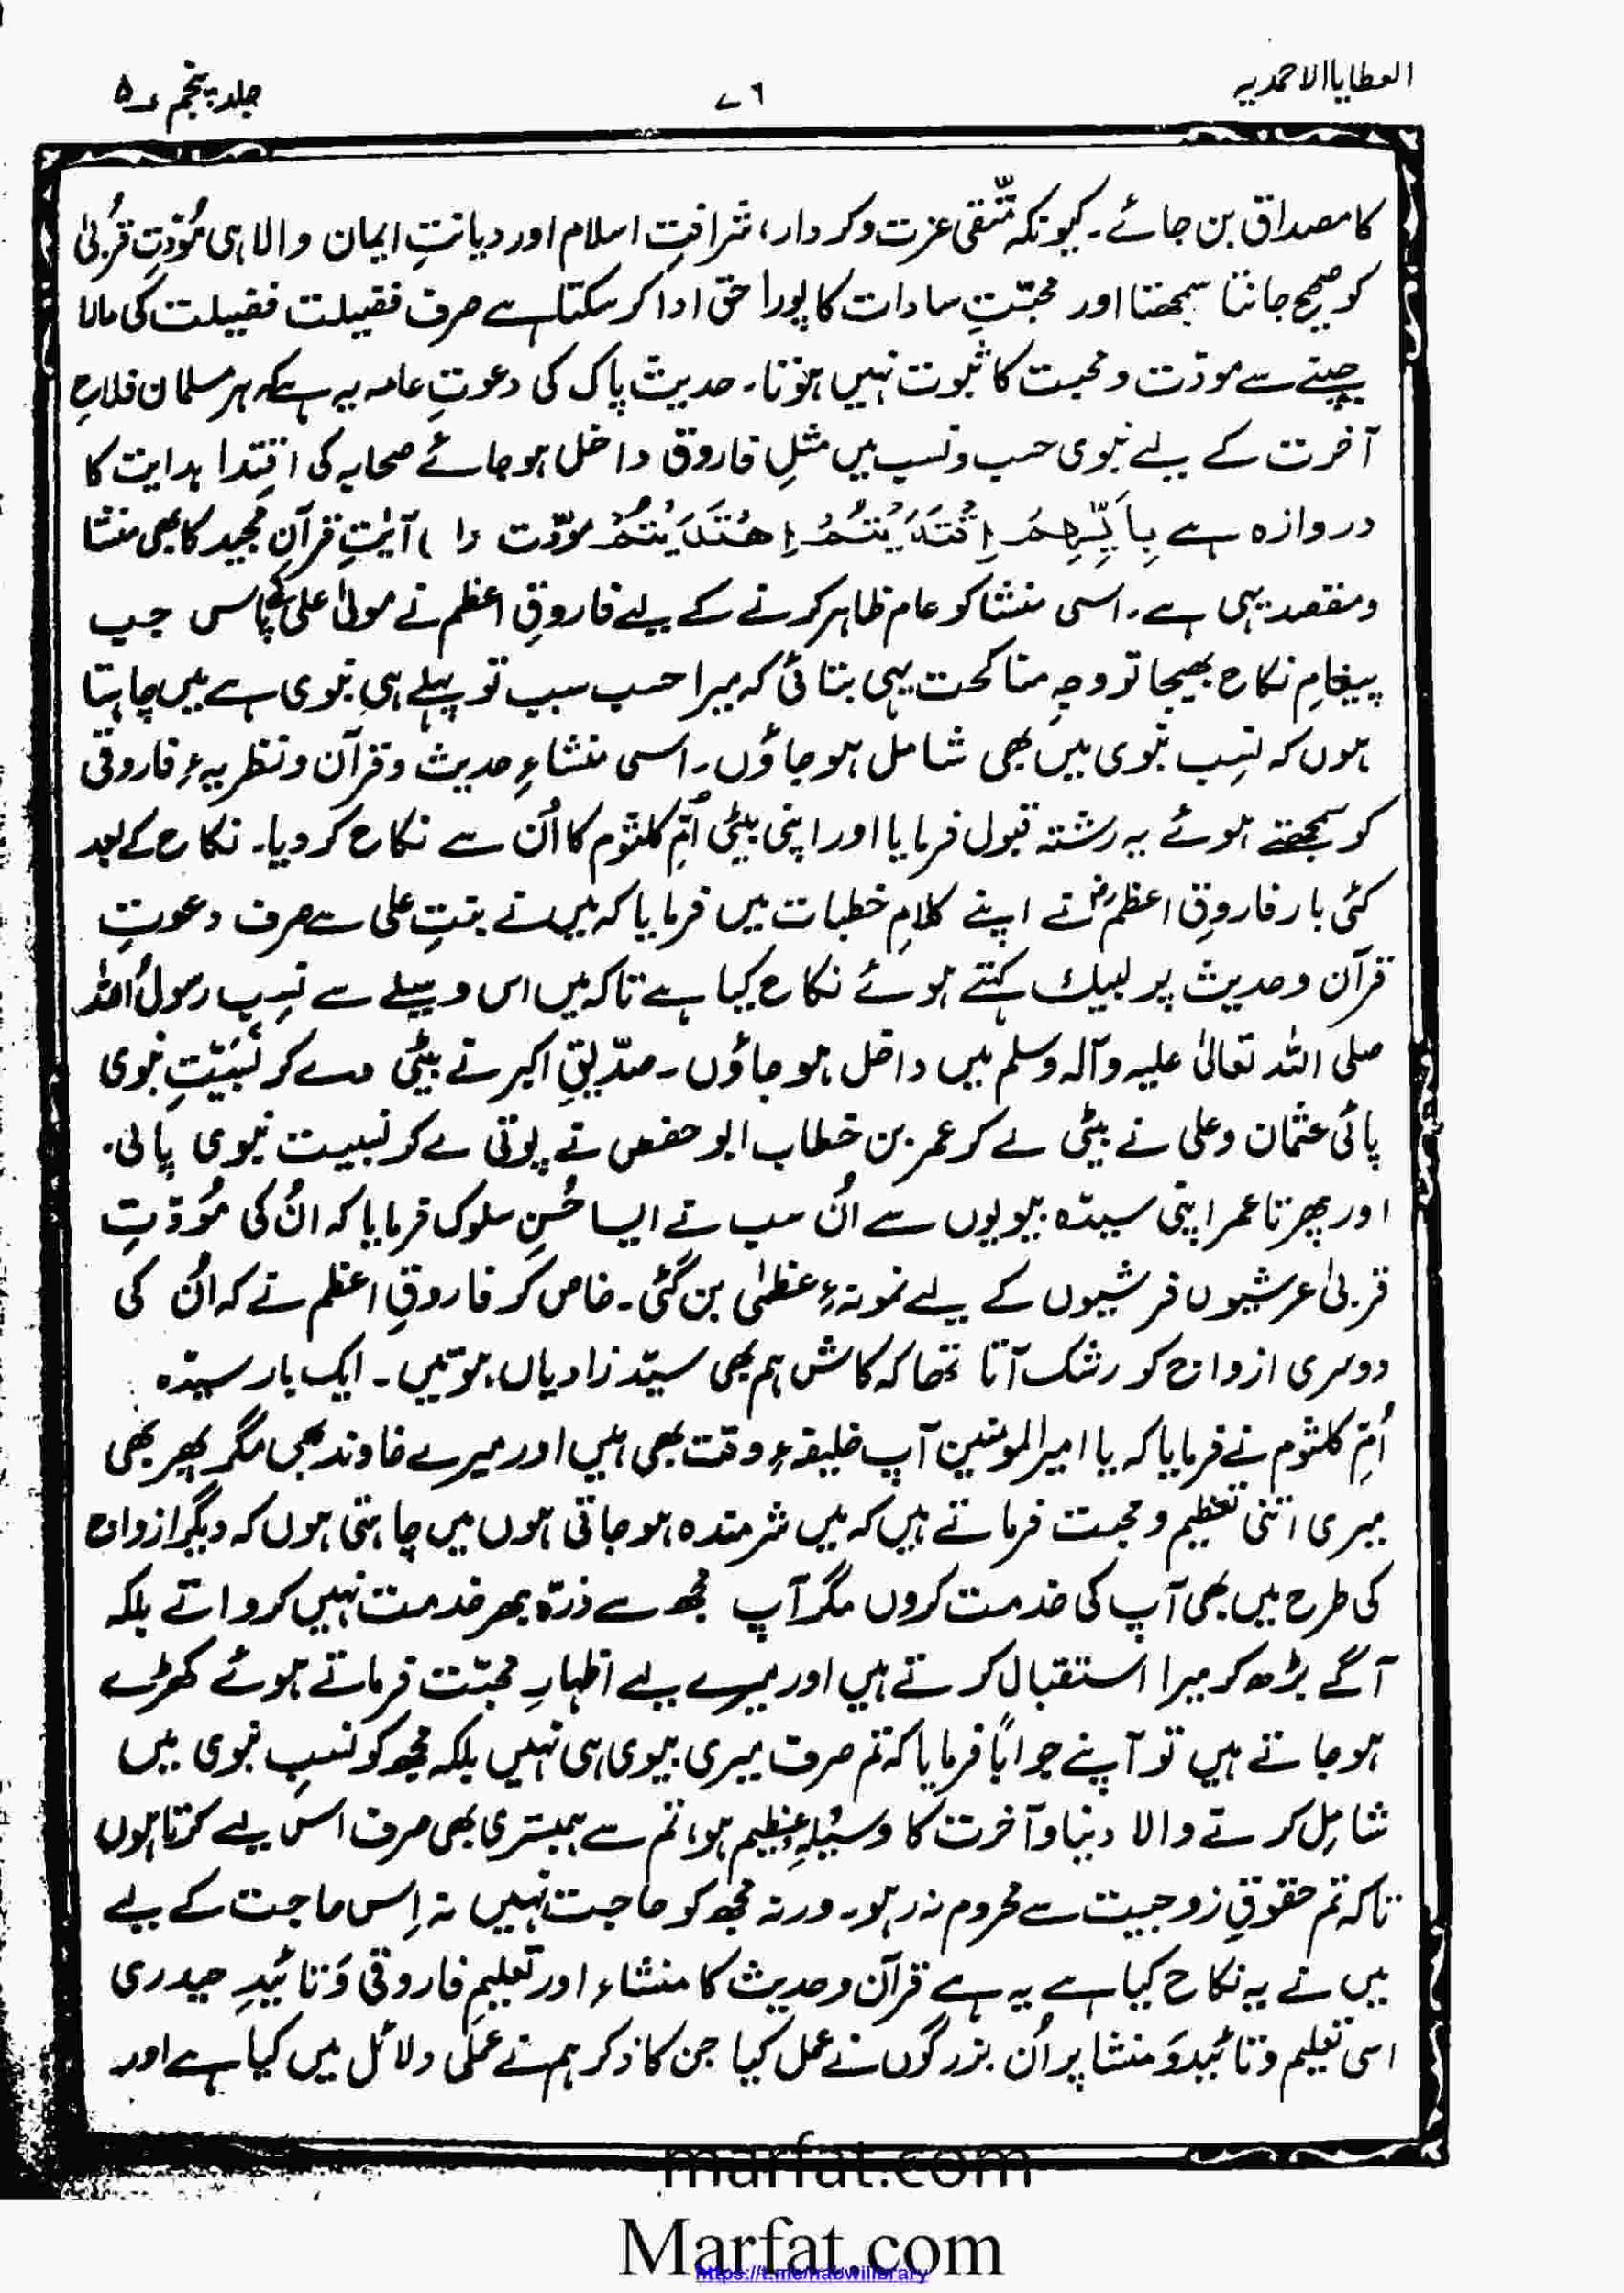 العطایا الاحمدیہ
۷۶
جلد پنجم ۵
کا مصداق بن جائے۔ کیونکہ متّقی عزت و کردار، شرافتِ اسلام اور دیانتِ ایمان والا ہی مُوَدّتِ قُربیٰ
کو صحیح جانتا سمجھتا اور محبّتِ سادات کا پورا حق ادا کر سکتا ہے صرف فضیلت فضیلت کی مالا
جپنے سے مودّت و محبت کا ثبوت نہیں ہوتا۔ حدیث پاک کی دعوتِ عامہ یہ ہے کہ ہر مسلمان فلاحِ
آخرت کے لیے نبوی حسب و نسب میں مثلِ فاروق داخل ہو جائے صحابہ کی اقتدا ہدایت کا
دروازہ ہے بِاَیِّہِمُ اِقْتَدَیْتُمُ اِھْتَدَیْتُمْ مودّت دا) آیٰتِ قرآنِ مجید کا بھی منشا
و مقصد یہی ہے۔ اسی منشا کو عام ظاہر کرنے کے لیے فاروقِ اعظم نے مولیٰ علی کے پاس جب
پیغامِ نکاح بھیجا تو وجہِ مناکحت یہی بتائی کہ میرا حسب سبب تو پہلے ہی نبوی ہے میں چاہتا
ہوں کہ نسبِ نبوی میں بھی شامل ہو جاؤں۔ اسی منشاءِ حدیث و قرآن و نظریہءِ فاروقی
کو سمجھتے ہوئے یہ رشتہ قبول فرمایا اور اپنی بیٹی اُمِّ کلثوم کا اُن سے نکاح کر دیا۔ نکاح کے بعد
کئی بار فاروقِ اعظمؓ نے اپنے کلامِ خطبات میں فرمایا کہ میں نے بنتِ علی سے صرف دعوتِ
قرآن و حدیث پر لبیک کہتے ہوئے نکاح کیا ہے تاکہ میں اس وسیلے سے نسبِ رسولُ اللہ
صلی اللہ تعالیٰ علیہ وآلہ وسلم میں داخل ہو جاؤں۔ صدّیقِ اکبر نے بیٹی دے کر نَسَبِیّتِ نبوی
پائی عثمان و علی نے بیٹی لے کر عمر بن خطاب ابو حفص نے پوتی لے کر نسبیت نبوی پالی۔
اور پھر تا عمر اپنی سیدّہ بیویوں سے اُن سب نے ایسا حُسنِ سلوک فرمایا کہ اُن کی مُوَدّتِ
قربیٰ عرشیوں فرشیوں کے لیے نمونہءِ عظمٰی بن گئی۔ خاص کر فاروقِ اعظم نے کہ اُن کی
دوسری ازواج کو رشک آتا تھا کہ کاش ہم بھی سیّد زادیاں ہوتیں۔ ایک بار سیدّہ
اُمِّ کلثوم نے فرمایا کہ یا امیر المومنین آپ خلیفہءِ وقت بھی ہیں اور میرے خاوند بھی مگر پھر بھی
میری اتنی تعظیم و محبت فرماتے ہیں کہ میں شرمندہ ہو جاتی ہوں میں چاہتی ہوں کہ دیگر ازواج
کی طرح میں بھی آپ کی خدمت کروں مگر آپ مجھ سے ذرّہ بھر خدمت نہیں کرواتے بلکہ
آگے بڑھ کر میرا استقبال کرتے ہیں اور میرے لیے اظہارِ محبّت فرماتے ہوئے کھڑے
ہو جاتے ہیں تو آپنے جواباً فرمایا کہ تم صرف میری بیوی ہی نہیں بلکہ مجھ کو نسبِ نبوی میں
شامل کرنے والا دنیا و آخرت کا وسیلہءِ عظیم ہو، تم سے ہمبستری بھی صرف اس لیے کرتا ہوں
تاکہ تم حقوقِ زوجیت سے محروم نہ رہو۔ ورنہ مجھ کو حاجت نہیں نہ اِس حاجت کے لیے
میں نے یہ نکاح کیا ہے یہ ہے قرآن و حدیث کا منشاء اور تعلیمِ فاروقی وَ تائیدِ حیدری
اسی تعلیم و تائید وَ منشا پر اُن بزرگوں نے عمل کیا جن کا ذکر ہم نے عملی دلائل میں کیا ہے اور
marfat.com
Marfat.com
https://t.me/nabwilibrary